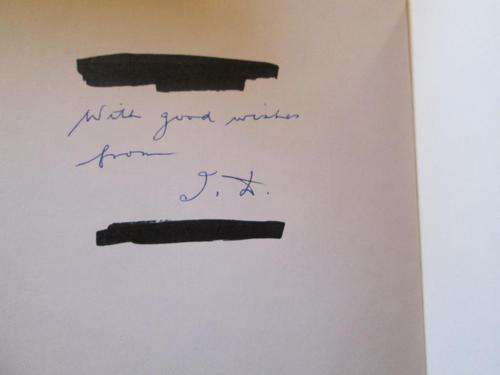 With good wishes
from
J. D.